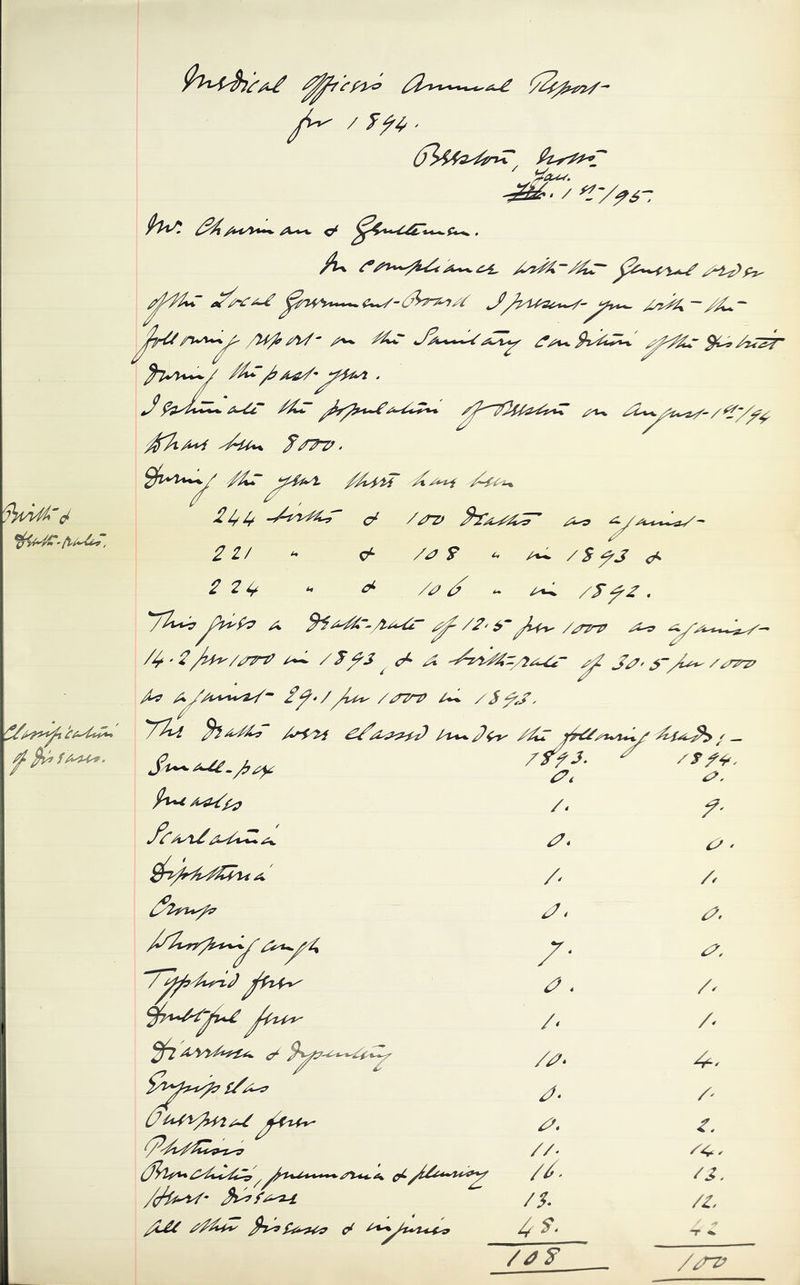 Medical Officer's Annual Report
for 1894.
Beeston, Notts
Jan. 1st/95.
Mr. Chairman & Gentlemen.
In compliance with the General order
of the Local Government Board I present you with the
following report on the Sanitary condition of the District
during the past year.
I estimate the population of Beeston on August 1st/94
to have been 8000.
During the year there have been
Birth &
Death-rates.
244 births & 100 deaths as against
221 " & 108 " in 1893 &
224 " & 106 " in 1892.
This gives a death-rate of 12.5 per 1000 as against
14.2 per 1000 in 1893, & a birth-rate of 30.5 per 1000
as against 29.1 per 1000 in 1893.
Classification
of diseases.
The deaths were classed under the following heads:-
1893. 1894.
Small-pox 0. 0.
Measles 1. 9.
Scarlatina 0. 0.
Diphtheria 1. 1.
Croup 0. 0.
Whooping cough 7. 0.
Typhoid fever 0. 1.
Doubtful fever 1. 1.
Diarrhoea & dysentery 10. 4.
Erysipelas 0. 1.
Puerperal fever 0. 2.
Phthisis 11. 14.
Bronchitis, pneumonia & pleurisy 16. 13.
Heart disease 13. 12.
All other diseases & injuries 48. 42
108 100